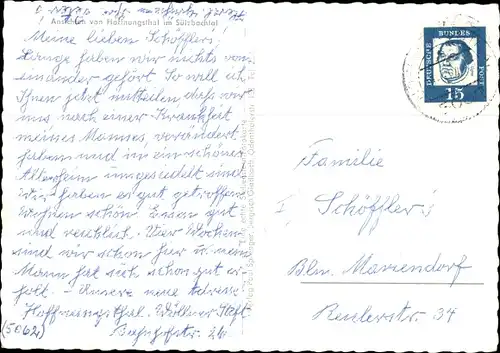 Ansichten von Hoffnungsthal im Sülzbachtal
Meine lieben Schöffler's!
Lange haben wir nichts von
einander gehört. So will ich
Ihnen jetzt mitteilen, daß wir
uns nach einer Krankheit
meines Mannes, verändert
haben und in ein schönes
Altersheim umgesiedelt sind
Wir haben es gut getroffen
Wohnen schön. Essen gut
und reichlich. Vier Wochen
sind wir schon hier u. mein
Mann hat sich schon gut er-
holt. - Unsere neue Adresse
Hoffnungsthal. Wöllner Stift.
(5062) Bahnhofstr. 26
DEUTSCHE BUNDES POST
15
Familie
Schöffler's
Bln. Mariendorf
Reulerstr. 34